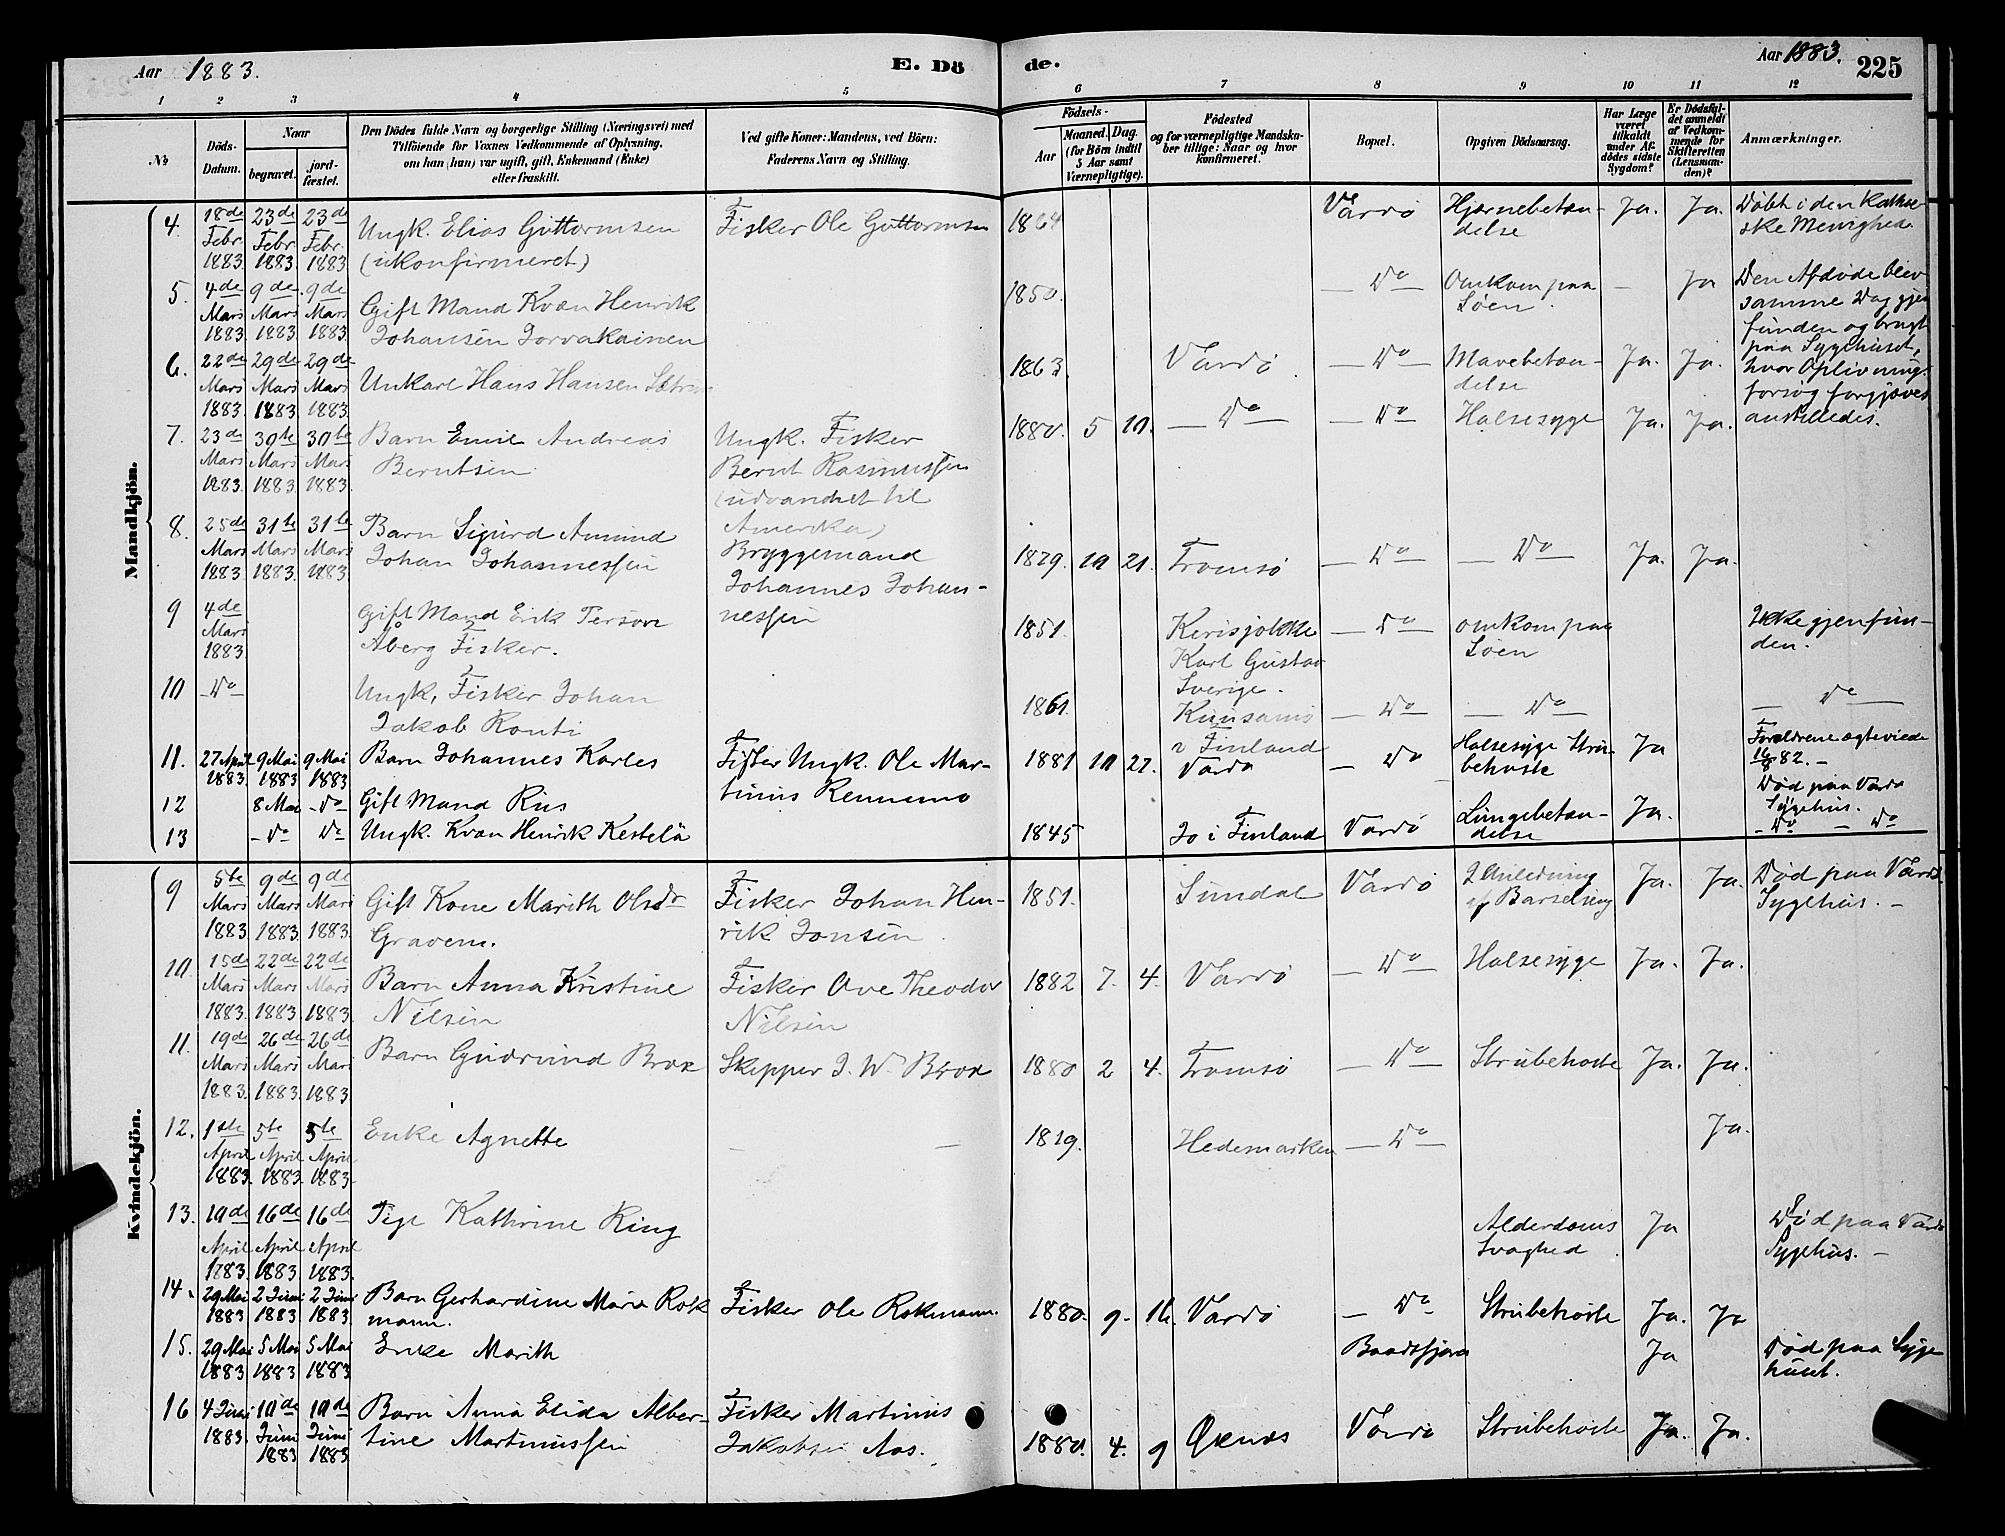 Aar 1883.
E. Dö
de.
Aar 1883.
225
1 2 3 4 5 6 7 8 9 10 11 12
No
Döds-
Datum.
Naar
begravet.
jord-
fæstet.
Den Dödes fulde Navn og borgerlige Stilling (Næringsvei) med
Tilföiende for Voxnes Vedkommende af Oplysning,
om han (hun) var ugift, gift, Enkemand (Enke)
eller fraskilt.
Ved gifte Koner: Mandens, ved Börn:
Faderens Navn og Stilling.
Födsels-
Aar
Maaned. Dag.
(for Börn indtil
5 Aar samt
Værnepligtige).
Födested
og for værnepligtige Mandska-
ber tillige: Naar og hvor
konfirmeret.
Bopæl.
Opgiven Dödsaarsag.
Har Læge
været
tilkaldt
under Af-
dödes sidste
Sygdom?
Er Dödsfal-
det anmeldt
af Vedkom-
mende for
Skifteretten
(Lensman-
den)?
Anmærkninger.
Mandkjön.
4. 18de Febr 1883 23de Febr 1883. 23de Febr. 1883
Ungk. Elias Guttormsen
(ukonfirmeret)
Fisker Ole Guttormsen
1864 Vardø
Hjernebetæn-
delse
Ja. Ja.
Døbt i den
ske Menighed
5. 4de Mars 1883. 9de Mars 1883 9de Mars 1883
Gift Mand Kvæn Henrik
Johansen Jorvakainen
1850. Do
Omkom paa
Søen.
– Ja
Den Afdøde blev
samme Dag gjen
funden og bragt
paa Sygehuset,
hvor Oplivnings
forsøg forgjæves
anstilledes.
6. 22de Mars 1883. 29de Mars 1883 29de Mars 1883.
Unkarl Hans Hansen
1863. Vardø Do
Mavebetæn-
delse
Ja. Ja.
7. 23de Mars 1883. 30te Mars 1883. 30te Mars 1883.
Barn Emil Andreas
Berntsen
Ungk. Fisker
Bernt Rasmussen
(udvandret til
Amerika)
1880. 5 10. Do Do Halsesyge Ja. Ja.
8. 25de Mars 1883 31te Mars 1883. 31te Mars 1883.
Barn Sigurd Amund
Johan Johannessen
Bryggemand
Johannes Johan-
nessen
1879. 10 21. Tromsø Do Do Ja. Ja.
9 4de Mars 1883
Gift Mand Erik Person
Åberg Fisker.
1851.
Kerisjokke
Karl Gustav
Sverige.
Do
omkom paa
Søen
Ikke gjenfun-
den.
10 Do
Ungk. Fisker Johan
Jakob Ronti
1861.
Kuusamo
i Finland
Do Do Do
11. 27 April 1883. 9 Mai 1883 9 Mai 1883
Barn Johannes Karles
Fisker Ungk. Ole Mar-
tinus Rennemo
1881 10 27. Vardø Do
Halsesyge Stru-
behoste
Ja
Forældrene ægteviede
82. –
12 8 Mai Do
Gift Mand Rus
Død paa Vardø
Sygehus.
13 Do Do
Ungk. Kvæn Henrik Kestelä
1845 Jo i Finland Vardø
Lungebetæn-
delse
Ja.
Do – Do
Kvindekjön.
9 5te Mars 1883 9de Mars 1883. 9de Mars 1883.
Gift Kone Marith Olsdr
Gravem.
Fisker Johan Hen-
rik Jonsen
1851. Sundal Vardø
I Anledning
af Barselseng
Ja. Ja.
Død paa Vardø
Sygehus. –
10. 15de Mars 1883. 22de Mars 1883 22de Mars 1883
Barn Anna Kristine
Nilsen
Fisker Ove Theodor
Nilsen
1882 7. 4. Vardø Do Halsesyge Ja. Ja.
11. 19de Mars 1883. 26de Mars 1883. 26de Mars 1883
Barn Gudrund Brox
Skipper J. W. Brox
1880 2 4. Tromsø Do Strubehoste Ja. Ja.
12. 1ste April 1883. 5te April 1883. 5te April 1883
Enke Agnette
– –
1819. Hedemarken Do Ja.
13. 10de April 1883. 16de April 1883 16de April 1883.
Pige Kathrine Ring
Alderdoms
Svaghed
Ja
Død paa Vardø
Sygehus. –
14. 29 Mai 1883 2 Juni 1883 2 Juni 1883
Barn Gerhardine Marie Rok
mann.
Fisker Ole Rokmann.
1880. 9. 16. Vardø Do Strubehoste Ja. Ja
15. 29 Mai 1883 5 Mai 1883 5 Mai 1883
Enke Marith
Baadsfjord Ja
Død paa Syge
huset.
16 4 Juni 1883. 10de Juni 1883 10de Juni 1883
Barn Anna Elida Alber-
tine Martinussen
Fisker Martinus
Jakobsen Aas.
1880. 4. 9 Øxnes Vardø Strubehoste Ja. Ja.